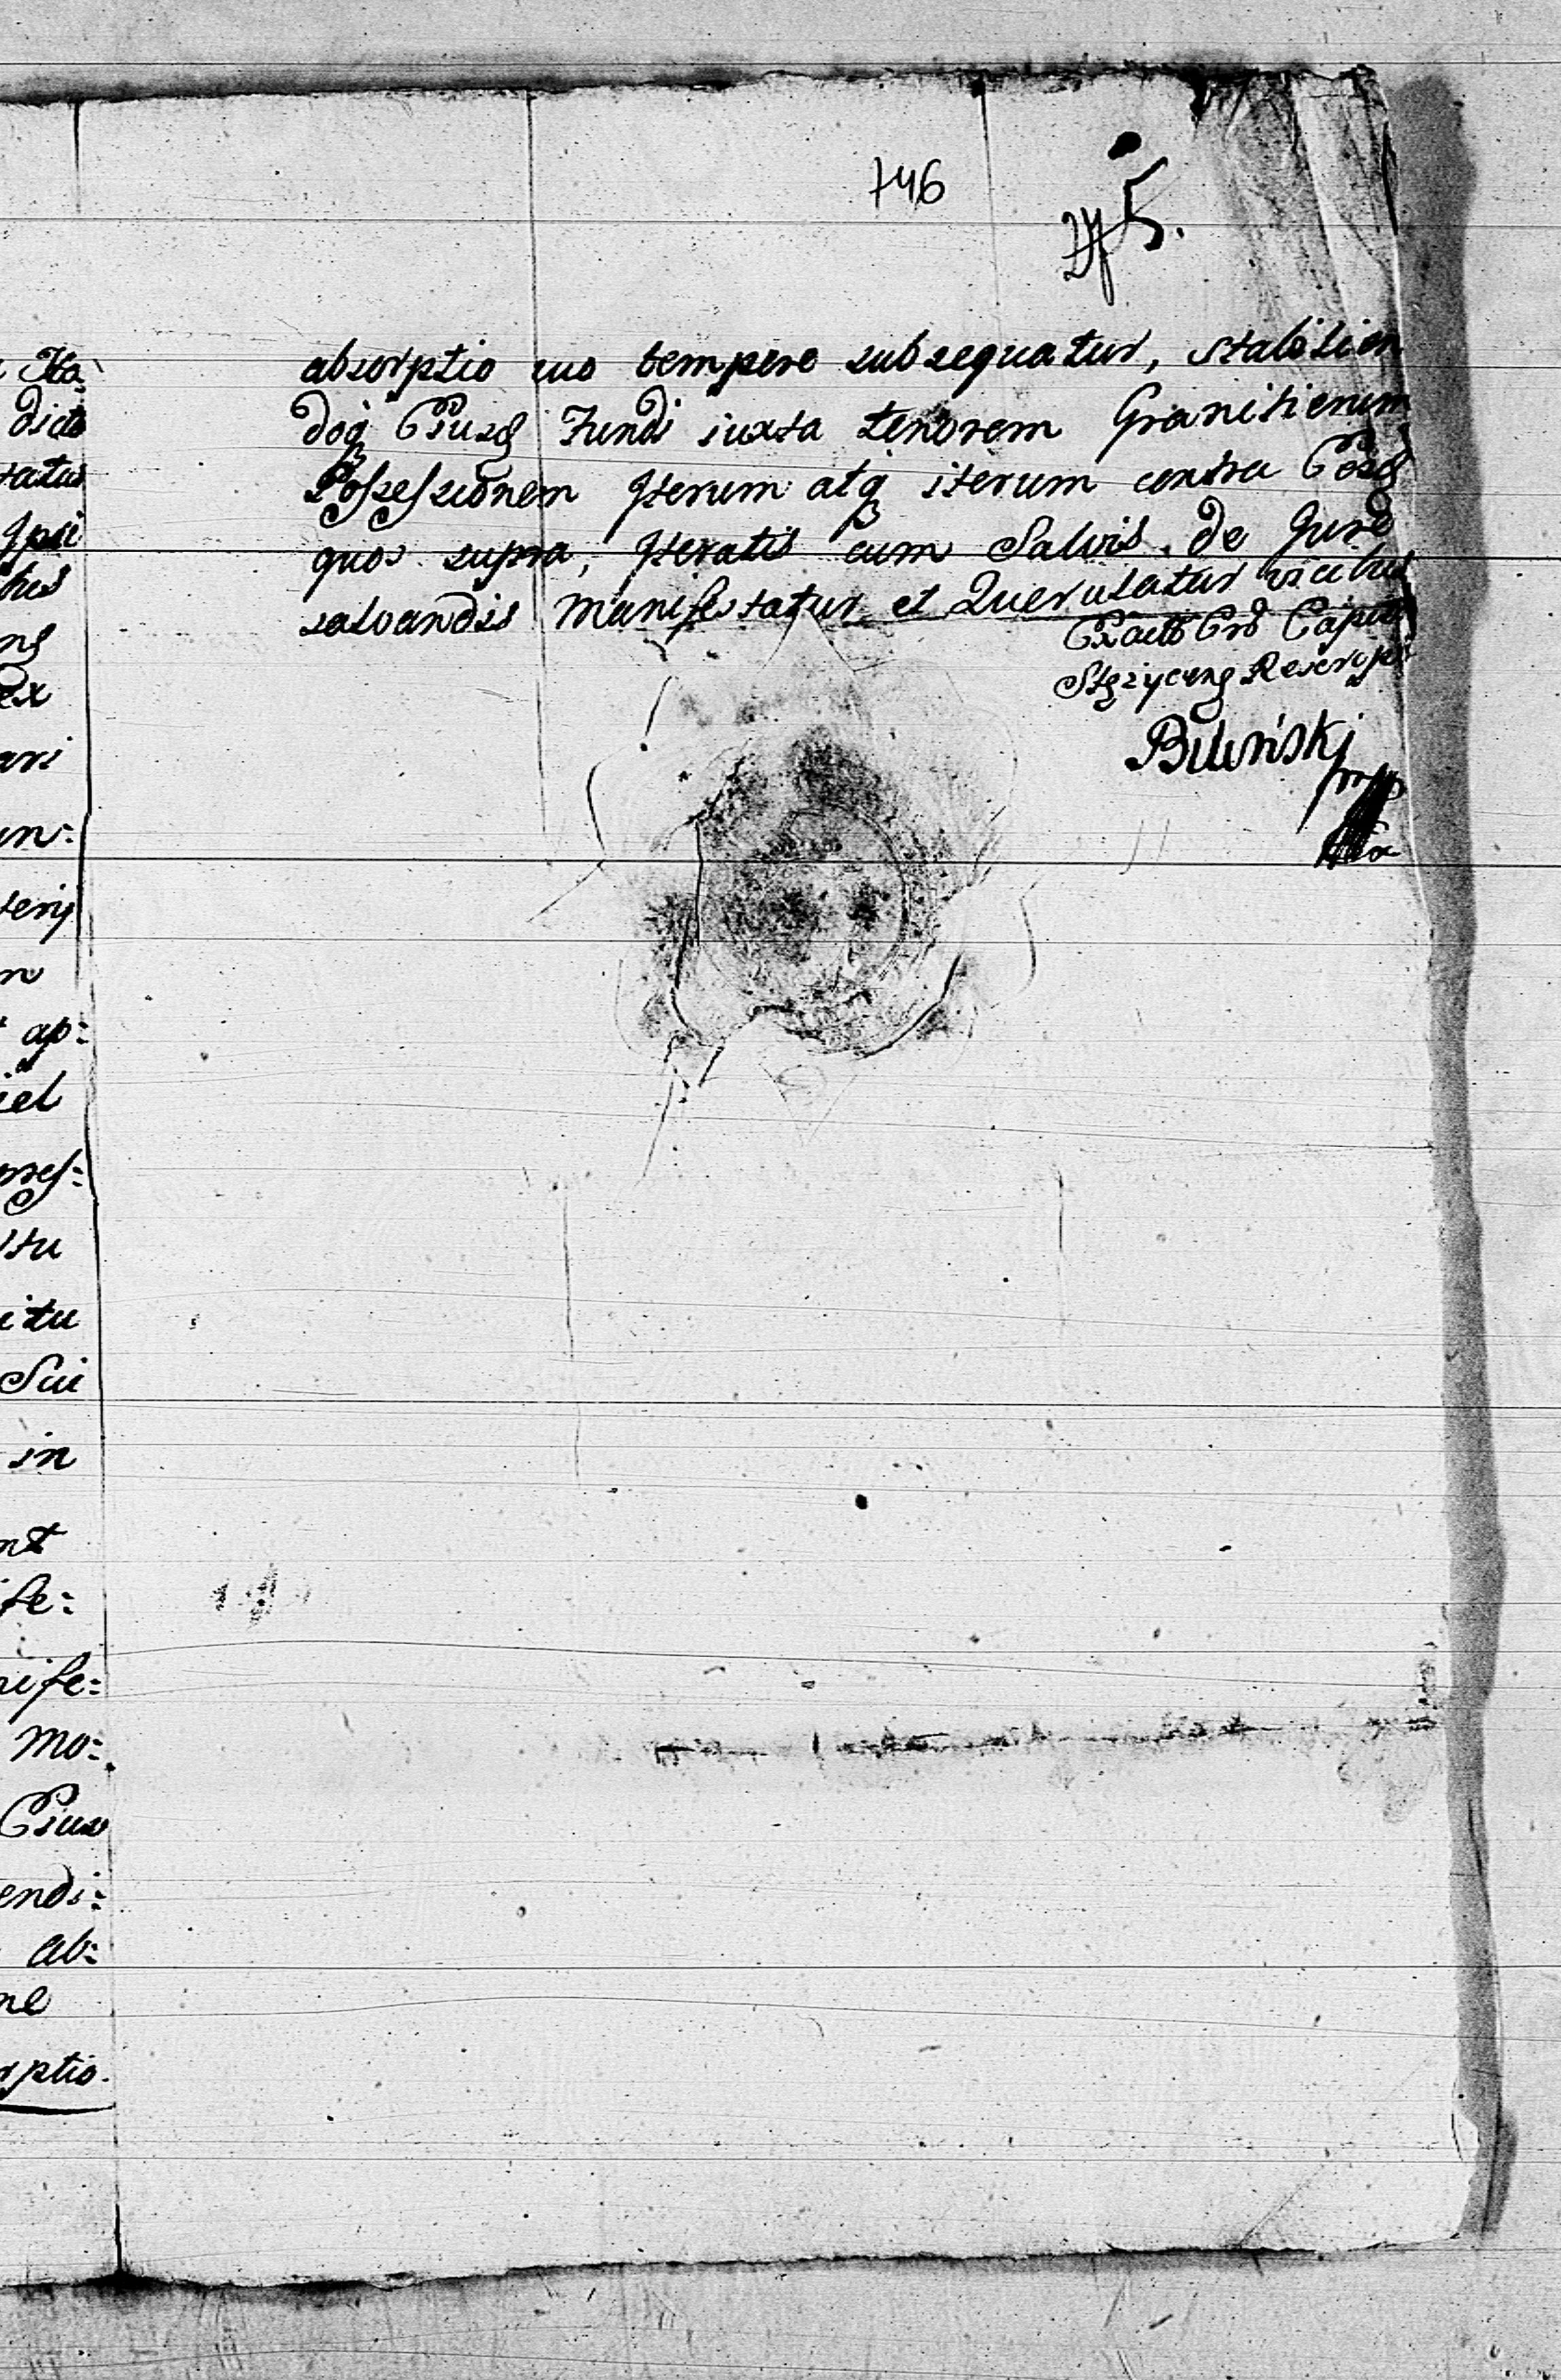 746
5.
absorptio suo tempore subsequatur, stabilien
doq Eiusd Fundi iuxta tenorem Granitierum
Possessionem Iterum atq iterum contra Eosd
quos supra, Iteratis cum Salvis de Jure
salvandis Manifestatur et Querulatur vicibus
Ex Actis Capit
Stężycens Rescrip
Biliński
Ha
dicto
tatus
Ipsi
bus
ns
ex
ari
un:
terij
n
t ap:
iel
stu
itu
Sui
in
nt
fe:
nife:
mo:
Eius
endi:
ab:
ne
rptio.